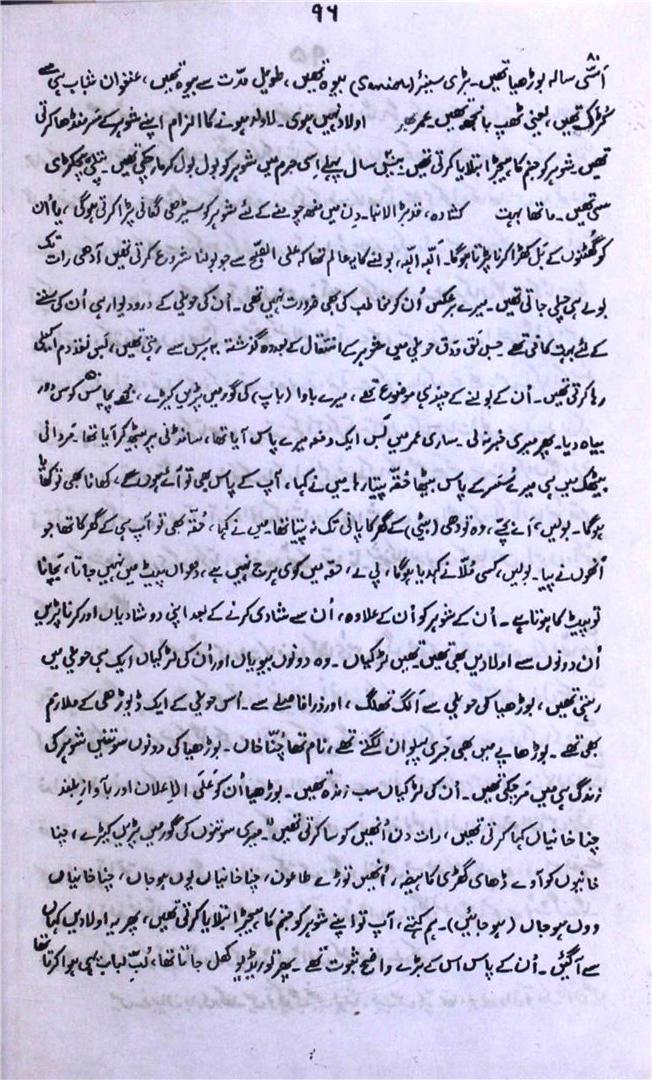 ۹۶
۸۰
اَسّی سالہ بوڑھیا تھیں۔ بڑی سینئر (Senior) بیوہ تھیں، طویل مدّت سے بیوہ تھیں، عنفوانِ شباب ہی سے
کُڑک تھیں، یعنی ٹھپ بانجھ تھیں۔ عمر بھر اولاد نہیں ہوئی۔ لاولد ہونے کا الزام اپنے شوہر کے سر منڈھا کرتی
تھیں۔ شوہر کو جنم کا ہیجڑا بتلایا کرتی تھیں۔ سال پہلے اِسی جرم میں شوہر کو بول بول کر مار چکی تھیں۔
سی تھیں۔ ماتھا بہت کشادہ، قد بڑا لانبا۔ دِن میں منھ چومنے کے لئے شوہر کو سیڑھی لگانی پڑا کرتی ہوگی، یا اُن
کو گھُٹنوں کے بَل کھڑا کرنا پڑتا ہوگا۔ اَللہ اَللہ، بولنے کا یہ عالم تھا کہ علی الصّبح سے جو بولنا شروع کرتی تھیں آدھی رات تک
بولے ہی چلی جاتی تھیں۔ میرے برعکس اُن کو مخاطب کی بھی ضرورت نہیں تھی۔ اُن کی حویلی کے در و دیوار ہی اُن کی سننے
کے لئے بہت کافی تھے۔ جس لق و دق حویلی میں شوہر کے انتقال کے بعد وہ گذشتہ ۲۰ برس سے رہتی تھیں، بَس نقد دم اکیلی
رہا کرتی تھیں۔ اُن کے بولنے کے چند ہی موضوع تھے، میرے باوا (باپ) کی گور میں پڑیں کیڑے، مجھے پچاس کوس دور
بیاہ دیا۔ پھر میری خبر نہ لی۔ ساری عمر میں بَس ایک دفعہ میرے پاس آیا تھا، سانڈنی پر بیٹھ کر آیا تھا۔ مردانی
بیٹھک میں ہی میرے سُسر کے پاس بیٹھا حقّہ پیتا رہا۔ میں نے کہا، آپ کے پاس بھی تو آئے ہوں گے، کھانا بھی تو کھایا
ہوگا۔ بولیں، اَے بچّے، وہ تو دھی (بیٹی) کے گھر کا پانی تک نہ پیتا تھا۔ میں نے کہا، حُقّہ بھی تو آپ ہی کے گھر کا تھا جو
اُنھوں نے پیا۔ بولیں، کسی مُلّا نے کہہ دیا ہوگا، پی لے، حقّہ میں کوئی ہرج نہیں ہے، دھواں پیٹ میں نہیں جاتا، بَچانا
تو پیٹ کا ہوتا ہے۔ اُن کے شوہر کو اُن کے علاوہ، اُن سے شادی کرنے کے بعد اپنی دو شادیاں اور کرنا پڑیں
اُن دونوں سے اولادیں بھی تھیں تھیں لڑکیاں۔ وہ دونوں بیویاں اور اُن کی لڑکیاں ایک ہی حویلی میں
رہتی تھیں، بوڑھیا کی حویلی سے اَلگ تھلگ، اور ذرا فاصلے سے۔ اُس حویلی کے ایک ڈیوڑھی کے ملازم
بھی تھے۔ بوڑھاپے میں بھی جَری پہلوان لگتے تھے، نام تھا چُنّا خاں۔ بوڑھیا کی دونوں سوتنیں شوہر کی
زندگی ہی میں مَر چکی تھیں۔ اُن کی لڑکیاں سب زندہ تھیں۔ بوڑھیا اُن کو عَلَی الاِعلان اور بآوازِ بلند
چنا خانیاں کہا کرتی تھیں، رات دن اُنھیں کوسا کرتی تھیں۔ "میری سوتنوں کی گور میں پڑیں کیڑے، چنا
خانیوں کو آوے ڈھائی گھڑی کا ہیضہ، اُنھیں توڑے طاعون، چنا خانیاں یوں ہو جاں، چنا خانیاں
ووں ہو جاں (ہو جائیں)۔ ہم کہتے، آپ تو اپنے شوہر کو جنم کا ہیجڑا بتلایا کرتی تھیں، پھر یہ اولادیں کہاں
سے آگئیں۔ اُن کے پاس اس کے بڑے واضح ثبوت تھے۔ پھر تو ریڈیو کھل جاتا تھا، لُبِّ لباب یہی ہوا کرتا تھا